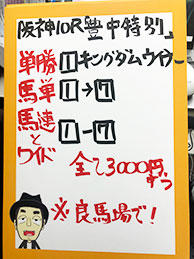 阪神10R「豊中特別」
単勝 1 キングダムウイナー
馬単 1→7
馬連とワイド 1-7
全て3000円ずつ
※良馬場で!